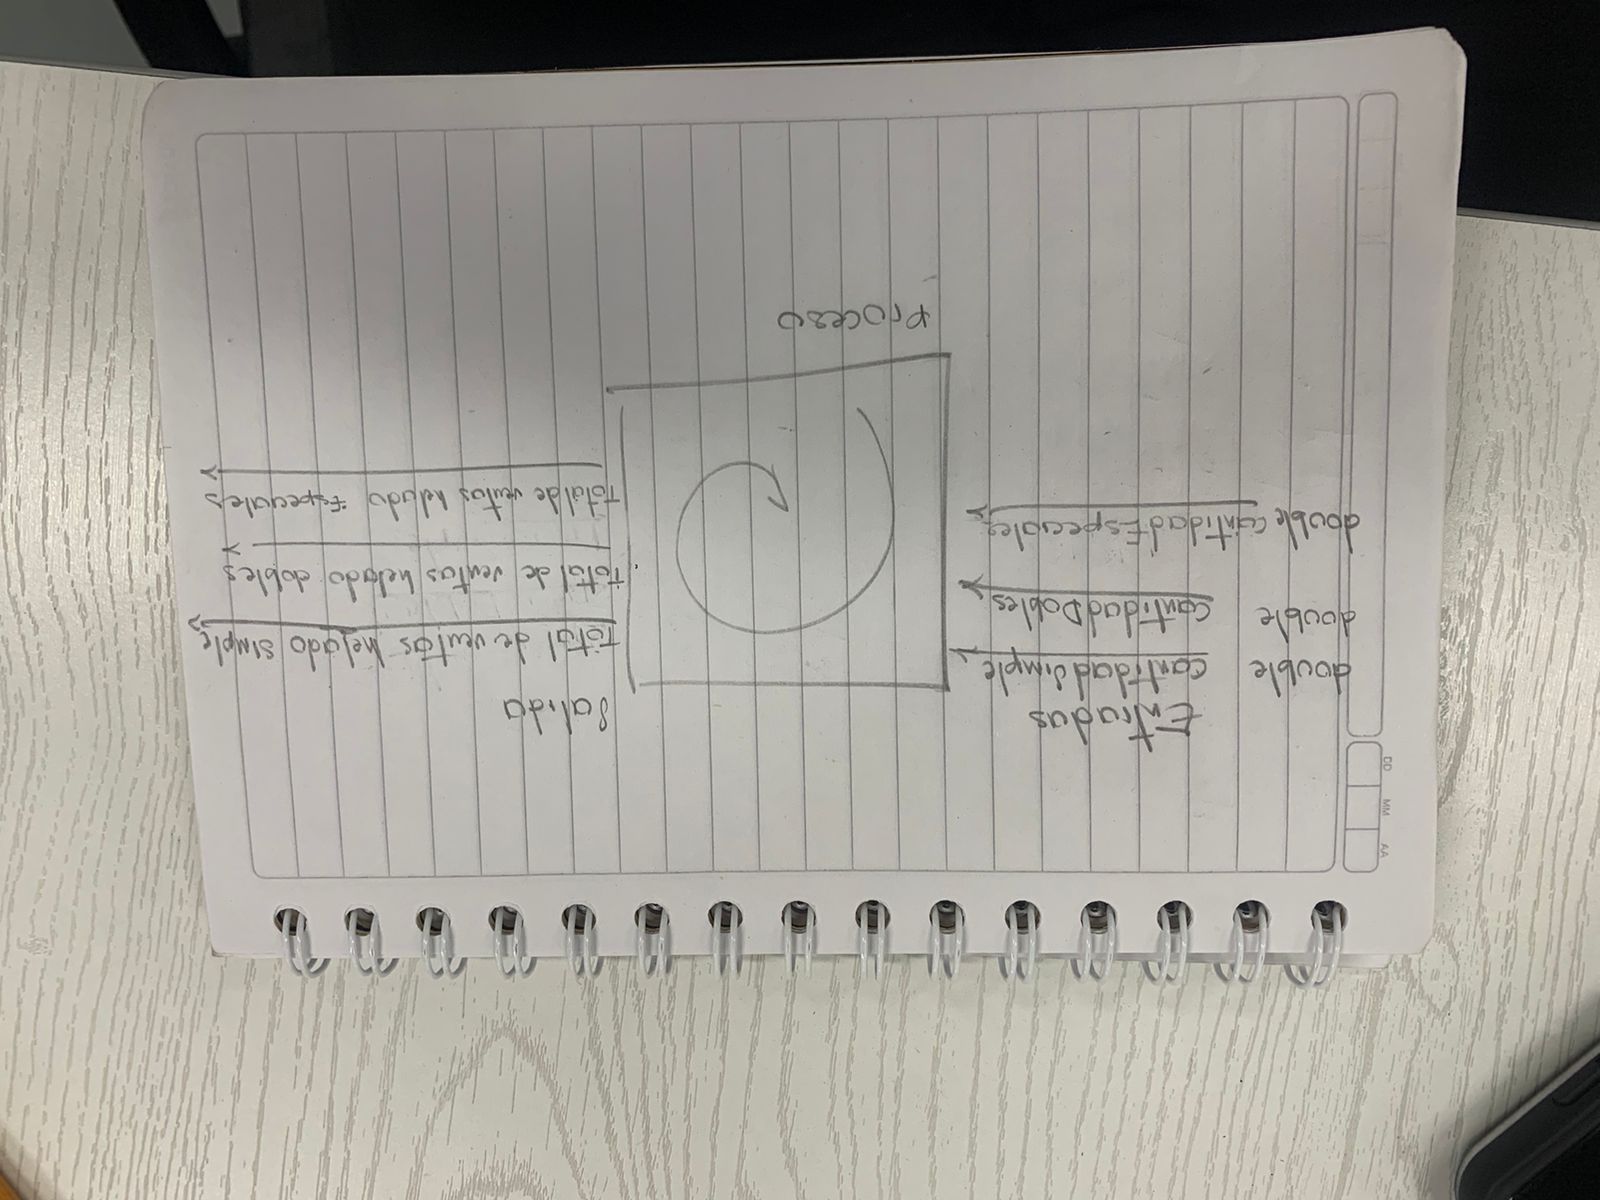 Entradas
double cantidadSimple
double cantidadDobles
double cantidadEspeciales
Salida
Total de ventas helado simple
Total de ventas helado dobles
Total de ventas helado Especiales
Proceso
DD
MM
AA